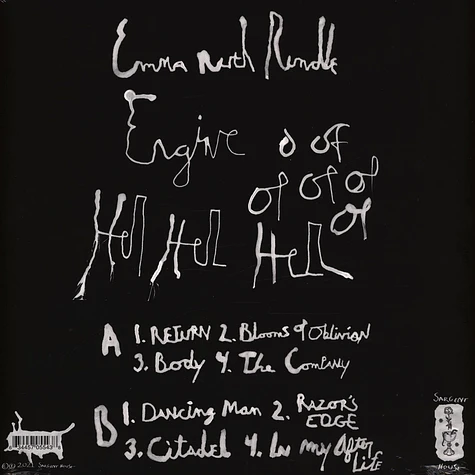 Emma Ruth Rundle
Engine o of
of of of
of
Hel Hel Hell
A 1. RETURN 2. Blooms of Oblivion
3. Body 4. The Company
B 1. Dancing Man 2. RAZOR'S EDGE
3. Citadel 4. In my After Life
SARGENT
HOUSE
©℗ 2021 SARGENT HOUSE